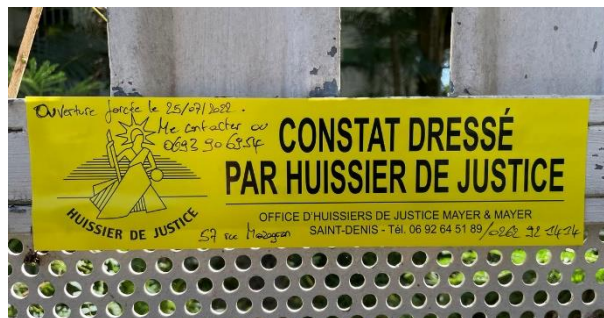 Ouverture forcée le 25/07/2022.
Me contacter au
0693 90 69 54
CONSTAT DRESSÉ
PAR HUISSIER DE JUSTICE
HUISSIER DE JUSTICE
OFFICE D'HUISSIERS DE JUSTICE MAYER & MAYER
57 rue Mazagran
SAINT-DENIS - Tél. 06 92 64 51 89 / 0262 92 1414